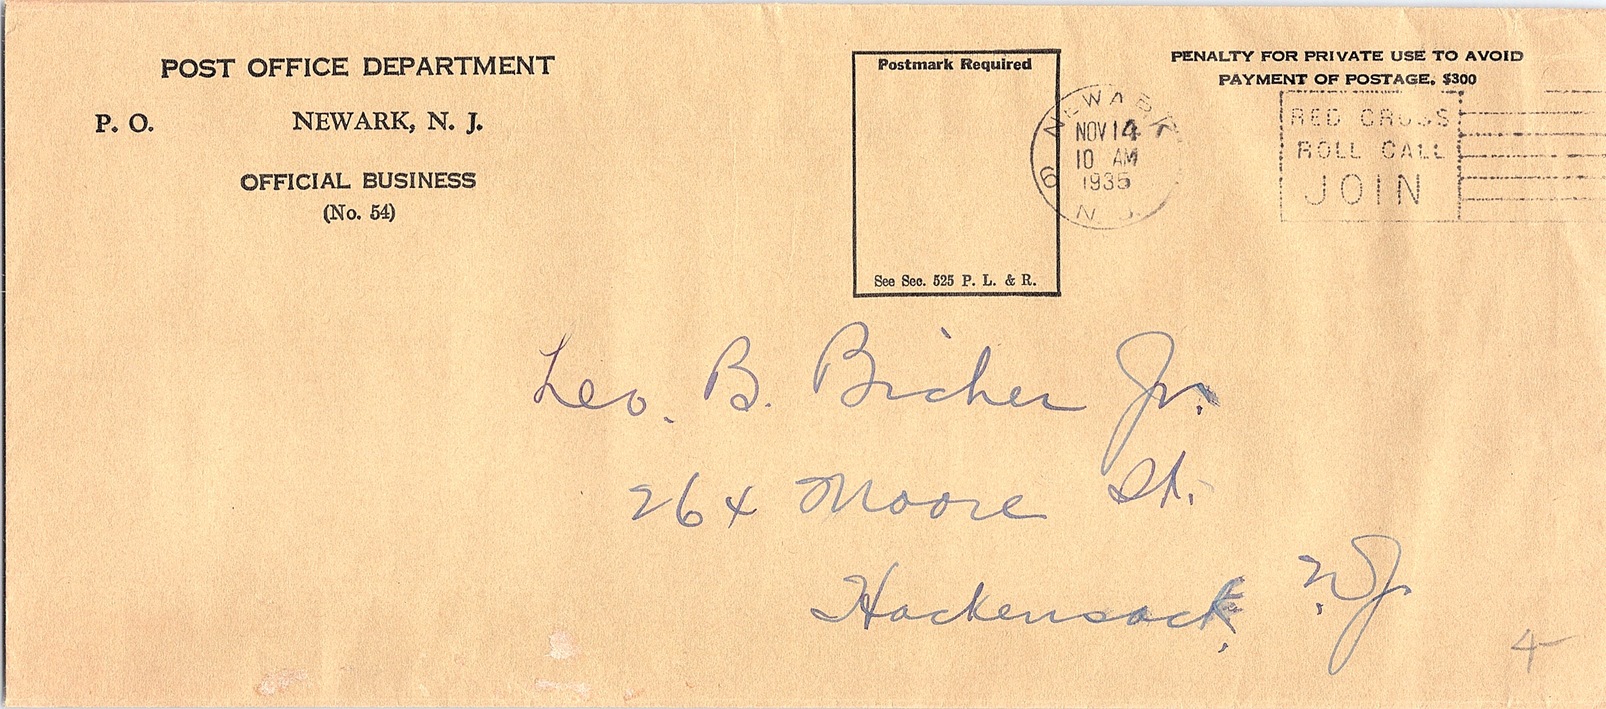 POST OFFICE DEPARTMENT
P. O. NEWARK, N. J.
OFFICIAL BUSINESS
(No. 54)
Postmark Required
See Sec. 525 P. L. & R.
PENALTY FOR PRIVATE USE TO AVOID
PAYMENT OF POSTAGE, $300
NEWARK
NOV 14
10 AM
1935
6
N. J.
RED CROSS
ROLL CALL
JOIN
Leo. B. Bicher Jr.
264 Moore St.
Hackensack, N.J.
4